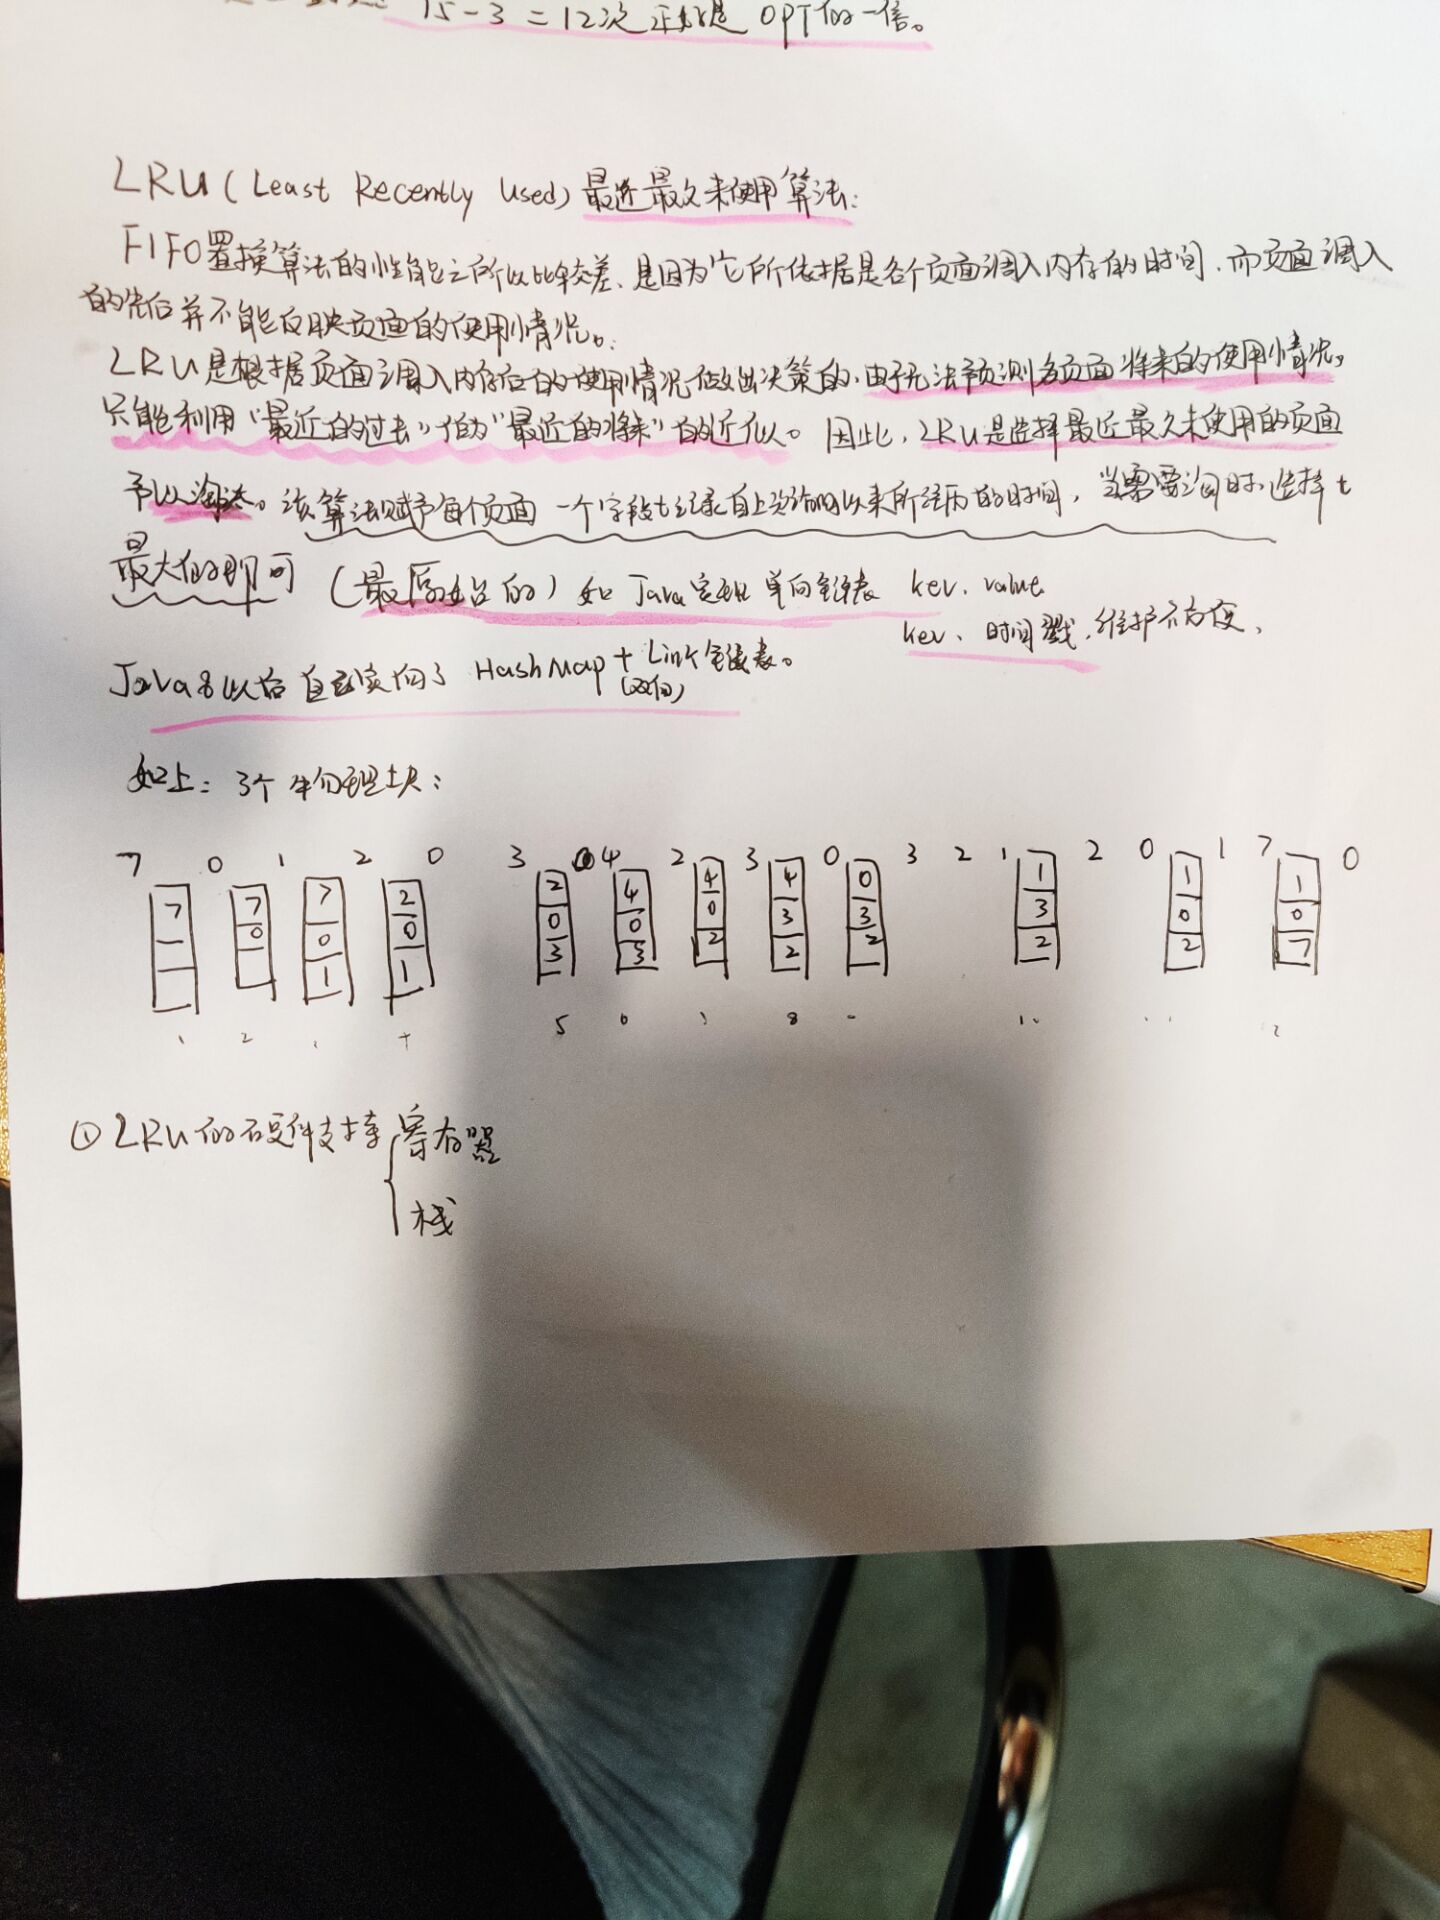 15-3=12次 正好是 OPT的一倍。
LRU(Least Recently Used)最近最久未使用算法:
FIFO置换算法的性能之所以比较差、是因为它所依据是各个页面调入内存的时间,而页面调入
的先后并不能反映页面的使用情况。
LRU是根据页面调入内存后的使用情况做出决策的,由于无法预测各页面将来的使用情况。
只能利用"最近的过去"作为"最近的将来"的近似。因此,LRU是选择最近最久未使用的页面
予以淘汰。该算法赋予每个页面一个字段t记录自上次访问以来所经历的时间,当需要淘汰时,选择t
最大值的即可 (最原始的)如 Java实现 单向链表 key、value
key、时间戳,维护不方便、
Java8以后自己实现了 HashMap+Link链表。
(双向)
如上: 3个物理块:
7 0 1 2 0 3 0 4 2 3 0 3 2 1 2 0 1 7 0
7 7 7 2 2 4 4 4 0 1 1 1
0 0 0 0 0 0 3 3 3 0 0
1 1 3 3 2 2 2 2 2 7
1 2 4 5 6 8
① LRU的硬件支持 寄存器
栈